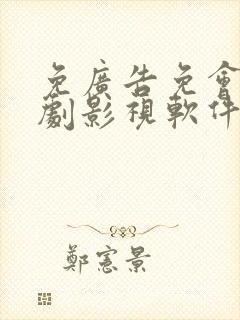 免廣告免會
劇影視軟件
鄭憲景